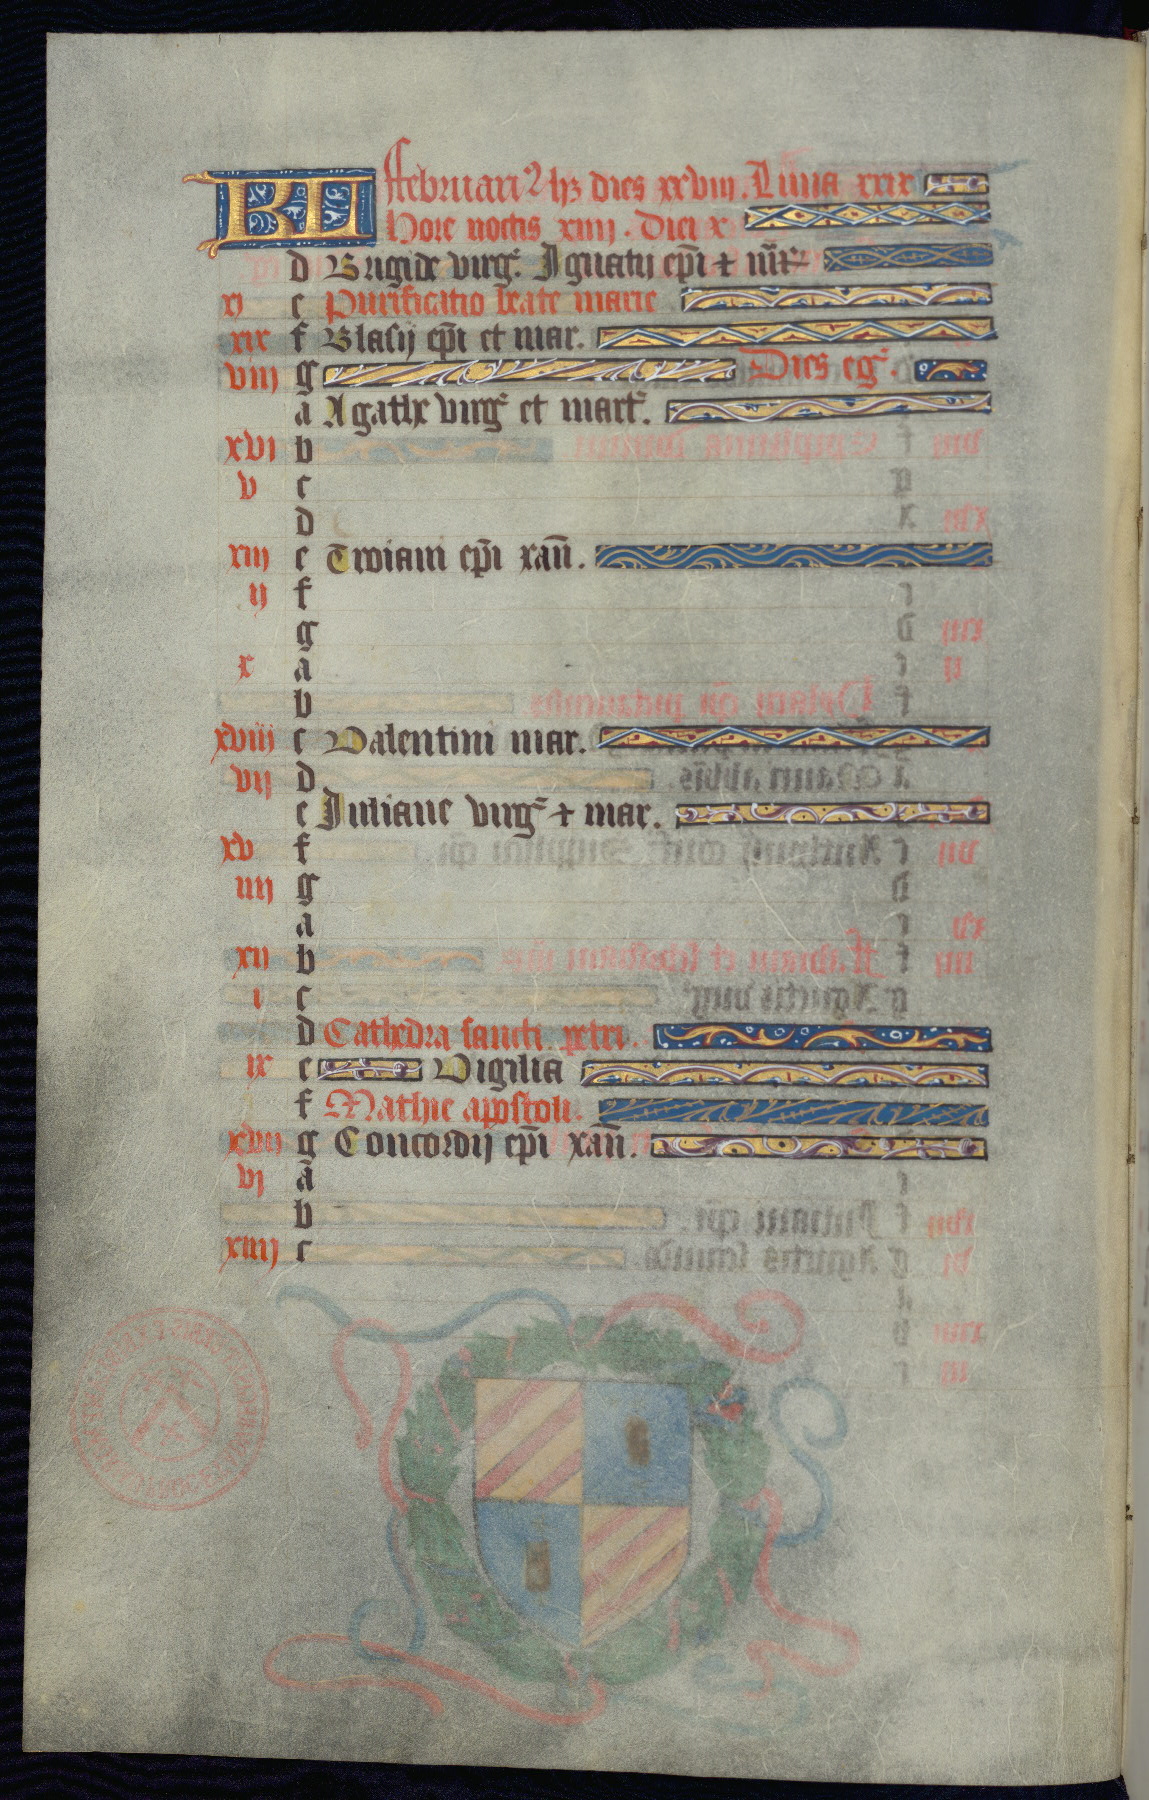 KL Februari9 hꝫ dies xxviii. Luna xxix
Hore noctis xiiii. Diei x
d Brigide virg᷑. Ignatij ep̄i +
xi e Purificatio beate marie
xix f Blasij ep̄i et mar.
viii g Dies eg᷑.
a Agathe virg᷑ et mart᷑.
xvi b
v c
d
xiii e Troiani ep̄i xan̄.
ij f
g
x a
b
xviii c Valentini mar.
vij d
e Juliane virg᷑ + mar.
xv f
iiij g
a
xii b
i c
d Cathedra sancti petri.
ix e Vigilia
f Mathie apostoli.
xvij g Concordij ep̄i xan̄.
vj a
b
xiiij c